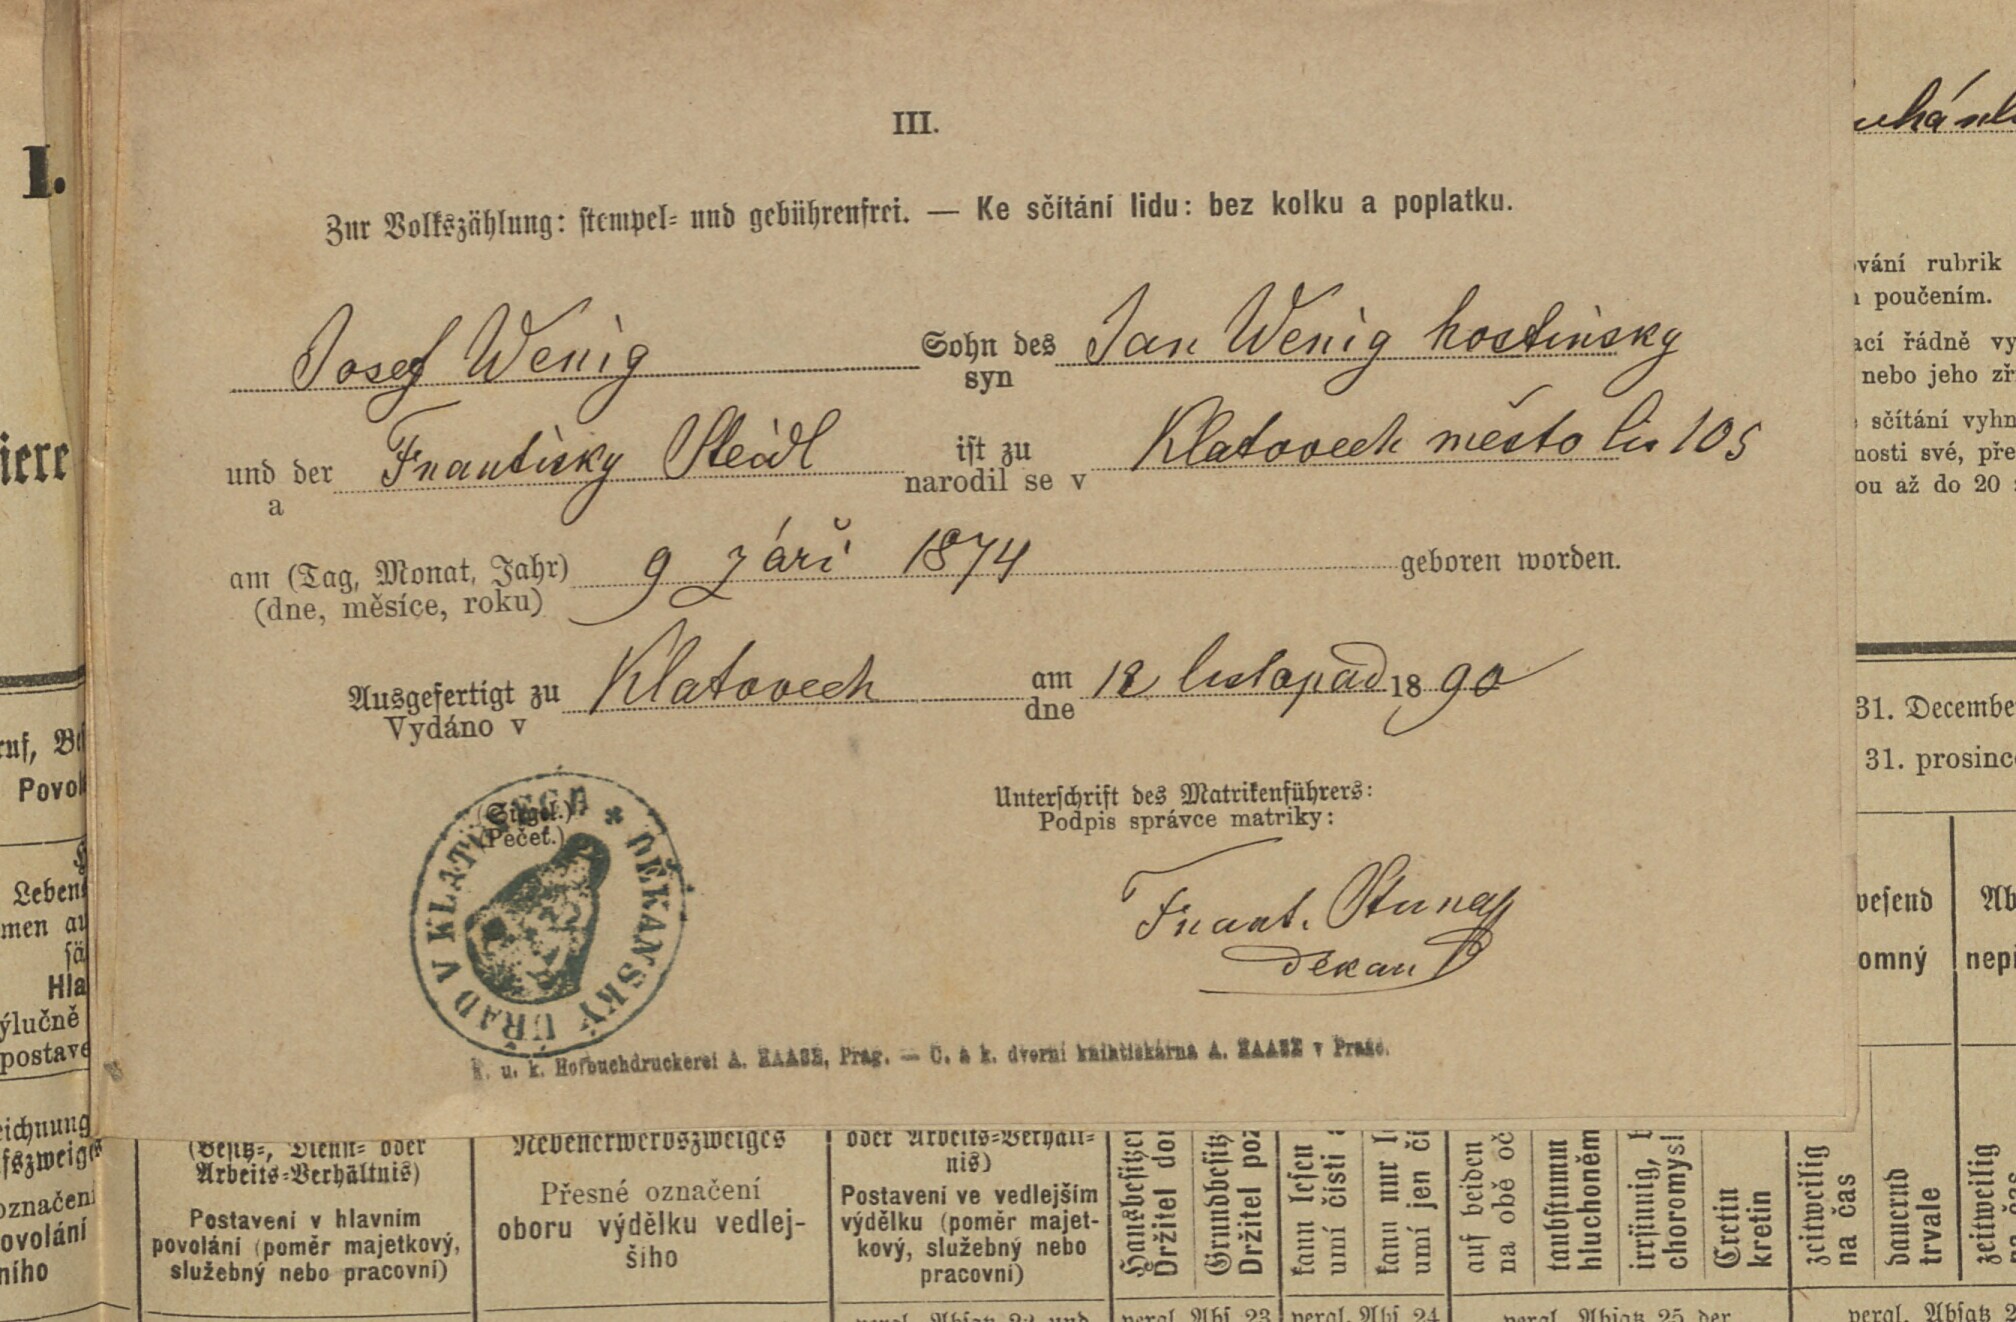 III.
Zur Volkszählung: stempel- und gebührenfrei. — Ke sčítání lidu: bez kolku a poplatku.
Josef Wenig Sohn des Jan Wenig hostinsky
syn
und der Frantisky Steidl ist zu Klatovech město čís 105
a narodil se v
am (Tag, Monat, Jahr) 9 září 1874 geboren worden.
(dne, měsíce, roku)
Ausgefertigt zu Klatovech am 12 listopad 1890
Vydáno v dne
(Siegel.)
(Pečeť.)
DĚKANSKÝ ÚŘAD V KLATOVECH
Unterschrift des Matrikenführers:
Podpis správce matriky:
Frant.
děkan
K. u. k. Hofbuchdruckerei A. HAASE, Prag. — C. a k. dvorní knihtiskárna A. HAASE v Praze.
I.
iere
ruf, Be
Povol
Leben
men au
sä
Hla
ýlučně
postave
eichnung
fszweiges
označení
ovolání
ního
vání rubrik
poučením.
ací řádně vy
nebo jeho zř
sčítání vyhn
nosti své, pře
ou až do 20
31. Decembe
31. prosince
vesend Ab
omný nepř
(Besitz-, Dienst- oder
Arbeits-Verhältnis)
Postavení v hlavním
povolání (poměr majetkový,
služebný nebo pracovní)
Nebenerwerbszweiges
Přesné označení
oboru výdělku vedlej-
šího
oder Arbeits-Verhält-
nis)
Postavení ve vedlejším
výdělku (poměr majet-
kový, služebný nebo
pracovní)
Hausbesitzer
Držitel do
Grundbesitz
Držitel poz
kann lesen
umí čísti a
kann nur l
umí jen čí
auf beiden
na obě oč
taubstumm
hluchoněm
irrsinnig,
choromysl
Cretin
kretin
zeitweilig
na čas
dauernd
trvale
zeitweilig
na čas
vergl. Absatz 22 und vergl. Abs. 23 vergl. Abs. 24 vergl. Absatz 25 der vergl. Absatz 2